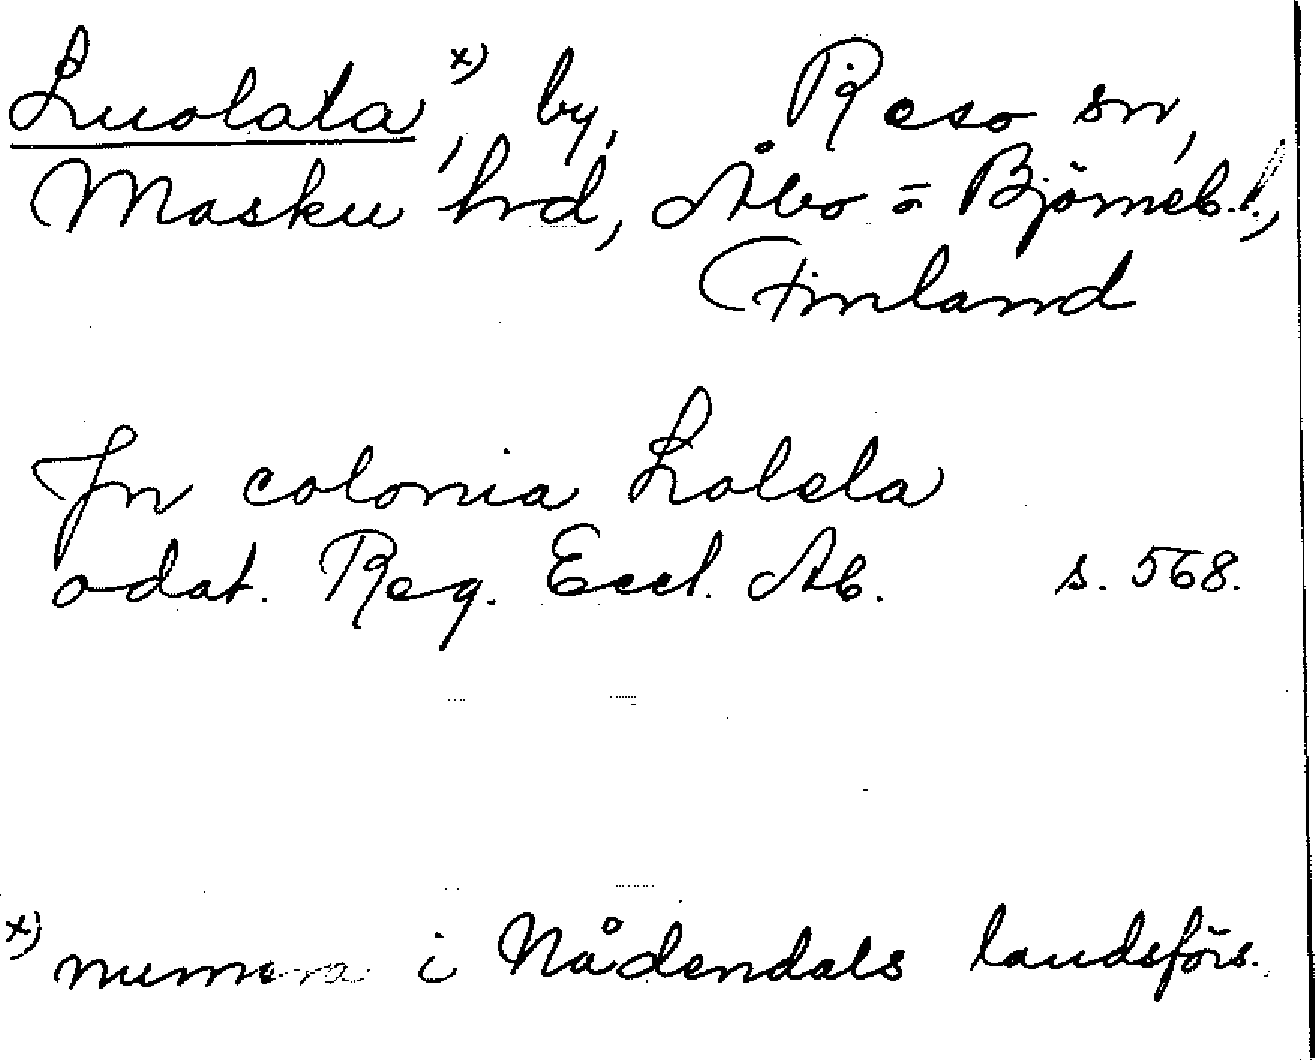 Luolala x), by, Reso sn,
Masku hrd, Åbo = Björneb. l.,
Finland
In colonia Lolela
odat. Reg. Eccl. Ab. s. 568.
x) numera i Nådendals landsförs.